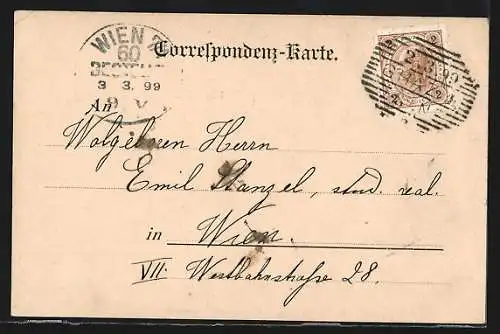 WIEN 7
60
BESTELLT
3 3. 99
9 V
Correspondenz-Karte.
2 3 99
2 2
An
Wolgeboren Herrn
Emil Stanzel, stud. real.
in Wien.
VII. Westbahnstraße 28.